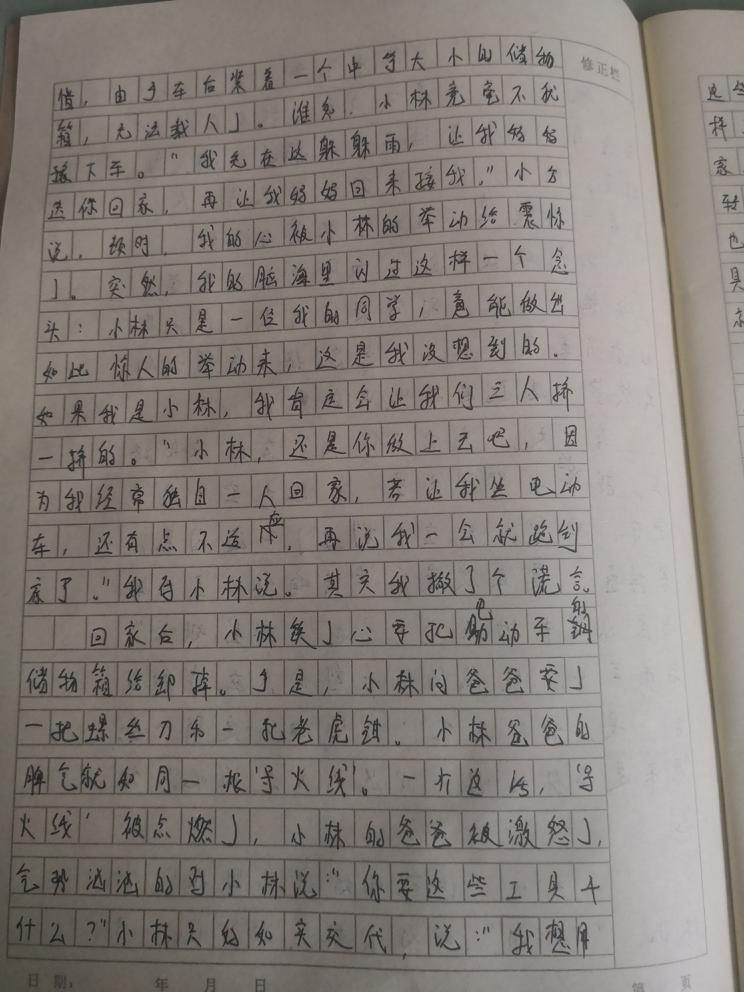 修正栏
惜，由于车后装着一个中等大小的储物
箱，无法载人了。谁知，小林竟毫不犹
豫下车。“我先在这躲躲雨，让我妈妈
送你回家，再让我妈妈回来接我，”小方
说，顿时，我的心被小林的举动给震惊
了。突然，我的脑海里闪过这样一个念
头：小林只是一位我的同学，竟能做出
如此惊人的举动来，这是我没想到的.
如果我是小林，我肯定会让我们三人挤
一挤的。“小林，还是你坐上去吧，因
为我经常独自一人回家，若让我坐电动
车，还有点不适应，再说我一会就跑到
家了。”我对小林说。其实我撒了个谎言。
回家后，小林铁了心要把电动车的
储物箱给卸掉。于是，小林问爸爸要了
一把螺丝刀和一把老虎钳。小林爸爸的
脾气就如同一根‘导火线’。一听这话，‘导
火线’被点燃了，小林的爸爸被激怒了，
气势汹汹的对小林说：“你要这些工具干
什么？”小林只好如实交代，说：“我想用
日期： 年 月 日
第 页
这些
样
家
转
也
具